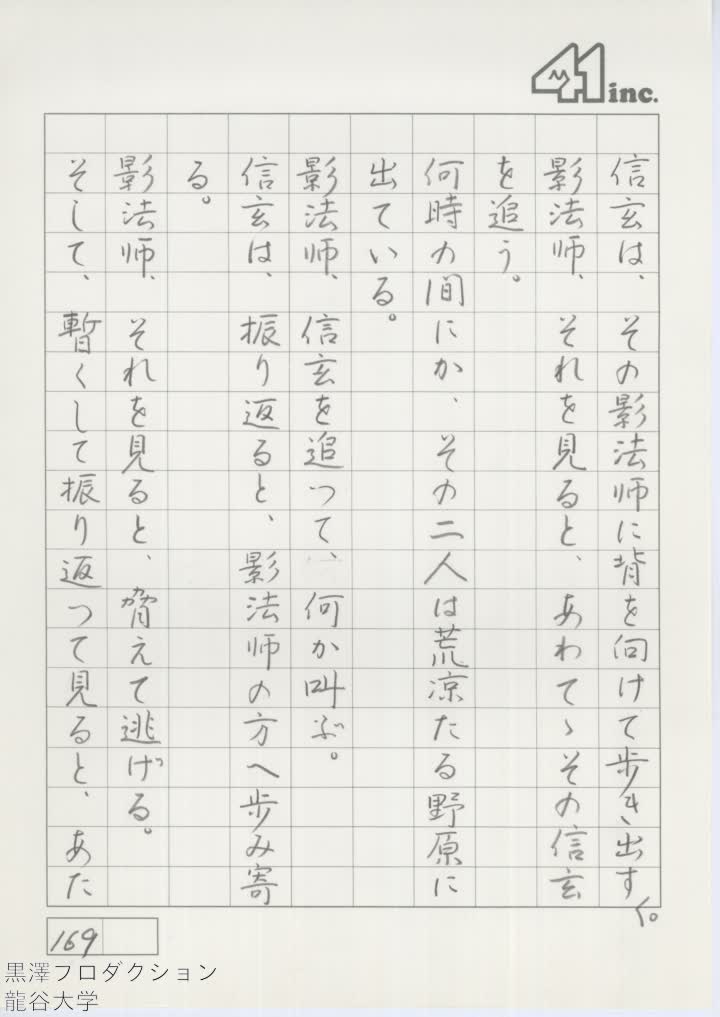 41 inc.
信玄は、その影法師に背を向けて歩き出す。
影法師、それを見ると、あわてゝその信玄
を追う。
何時の間にか、その二人は荒涼たる野原に
出ている。
影法師、信玄を追つて、何か叫ぶ。
信玄は、振り返ると、影法師の方へ歩み寄
る。
影法師、それを見ると、脅えて逃げる。
そして、暫くして振り返つて見ると、あた
169
黒澤プロダクション
龍谷大学